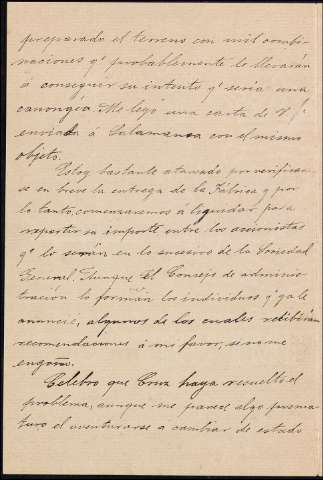 preparado el terreno con mil combi-
naciones q.e probablemente le llevarán
á conseguir su intento q.e sería una
canongía. Me leyó una carta de V.
enviada á Salamanca con el mismo
objeto.
Estoy bastante atareado por verificar-
se en breve la entrega de la Fábrica y por
lo tanto, comenzaremos á liquidar para
repartir su importe entre los accionistas
q.e lo serán en lo sucesivo de la Sociedad
General. Aunque el Consejo de adminis-
tración lo forman los individuos q ya le
anuncié, algunos de los cuales recibirán
recomendaciones á mi favor, se no me
engaña.
Celebro que Cruz haya resuelto el
problema, aunque me parece algo prema-
turo el aventurarse á cambiar de estado